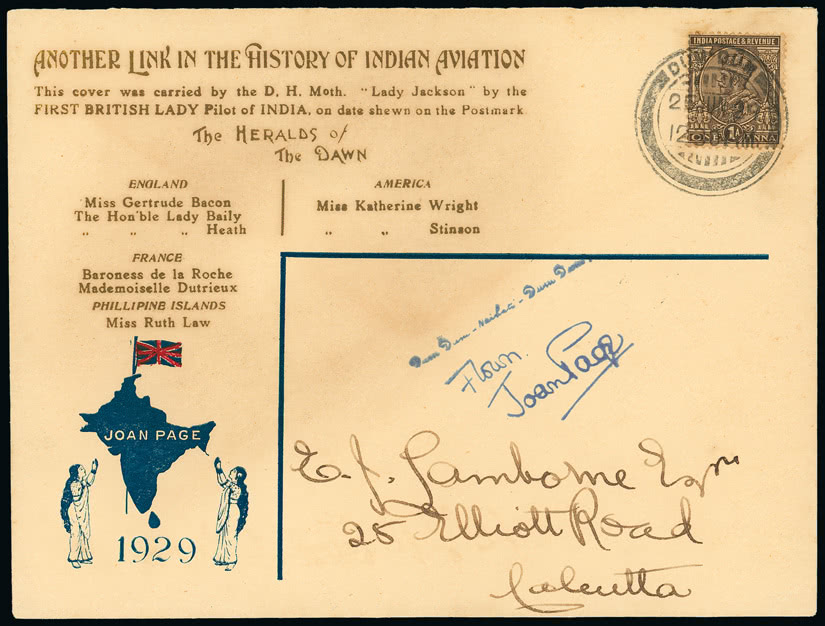 ANOTHER LINK IN THE HISTORY OF INDIAN AVIATION
This cover was carried by the D. H. Moth. "Lady Jackson" by the
FIRST BRITISH LADY Pilot of INDIA, on date shewn on the Postmark
The HERALDS of
The DAWN
ENGLAND
Miss Gertrude Bacon
The Hon'ble Lady Baily
„ „ Heath
AMERICA
Miss Katherine Wright
„ „ Stinson
FRANCE
Baroness de la Roche
Mademoiselle Dutrieux
PHILLIPINE ISLANDS
Miss Ruth Law
JOAN PAGE
1929
INDIA POSTAGE & REVENUE
ONE ANNA
DUM DUM
Dum Dum - - Dum Dum
Flown.
Joan Page
E. J. Lamborne Esqre
25 Elliott Road
Calcutta